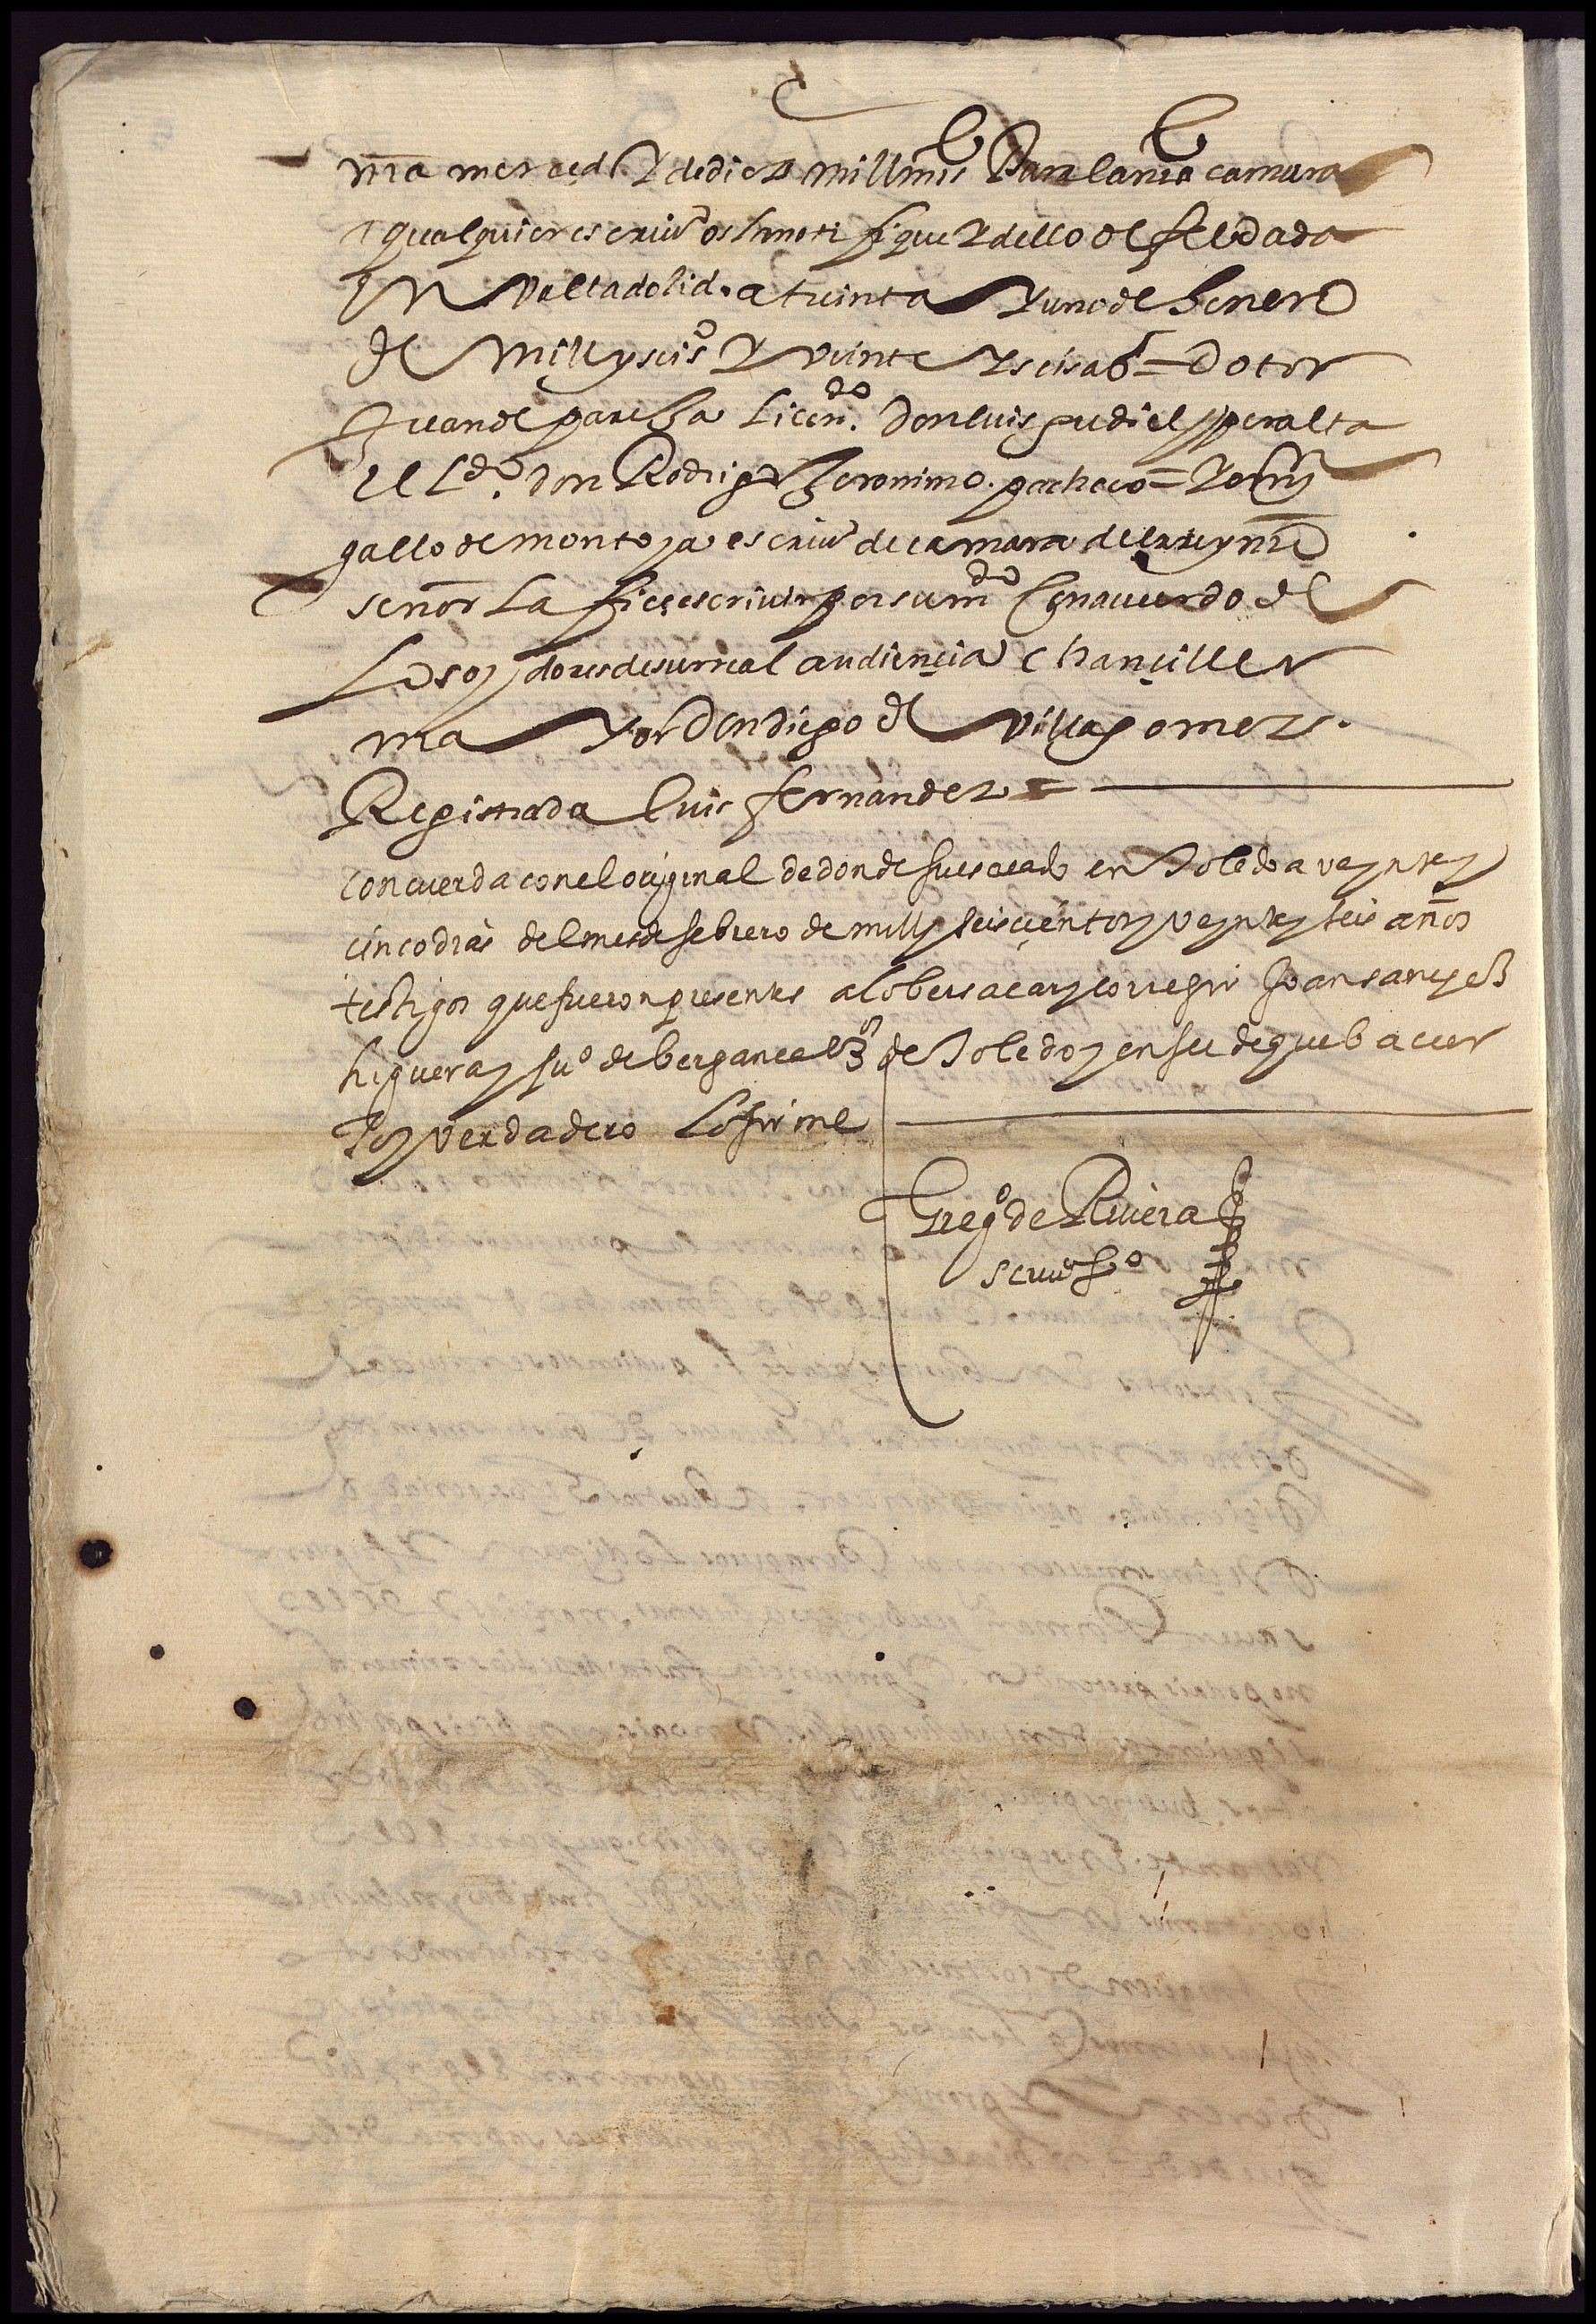 nra merced y de diez mill mrs Para la nra camara
a qualquier escriuº os la notifique y dello de fee dada
en Valladolid. a treinta y uno de henero
de Mill y seisº y veinte y seis aºs = Dotor
Juan de pareja Licendo. Don luis gudiel y peralta
el Ldo. don Rodrigo Jeronimo. pacheco = yo
gallo de montoya escriuº de camara del rey nro
señor La fice escriuir por su mdo con acuerdo de
Los oydores de su rreal audiençia chançiller
mayor Don diego de Villagomez.
Registrada luis fernandez =
concuerda con el original de donde fue sacado en Toledo a veynte y
cinco dias del mes de febrero de mill y seiscientos y veynte y seis años
testigos que fueron presentes a lo ber sacar y corregir Joan sanchez
higuera y juº de berganca vºs de Toledo y en fee de que ba cier
to y verdadero Lo firme
Gregº de Riuera
scriuº